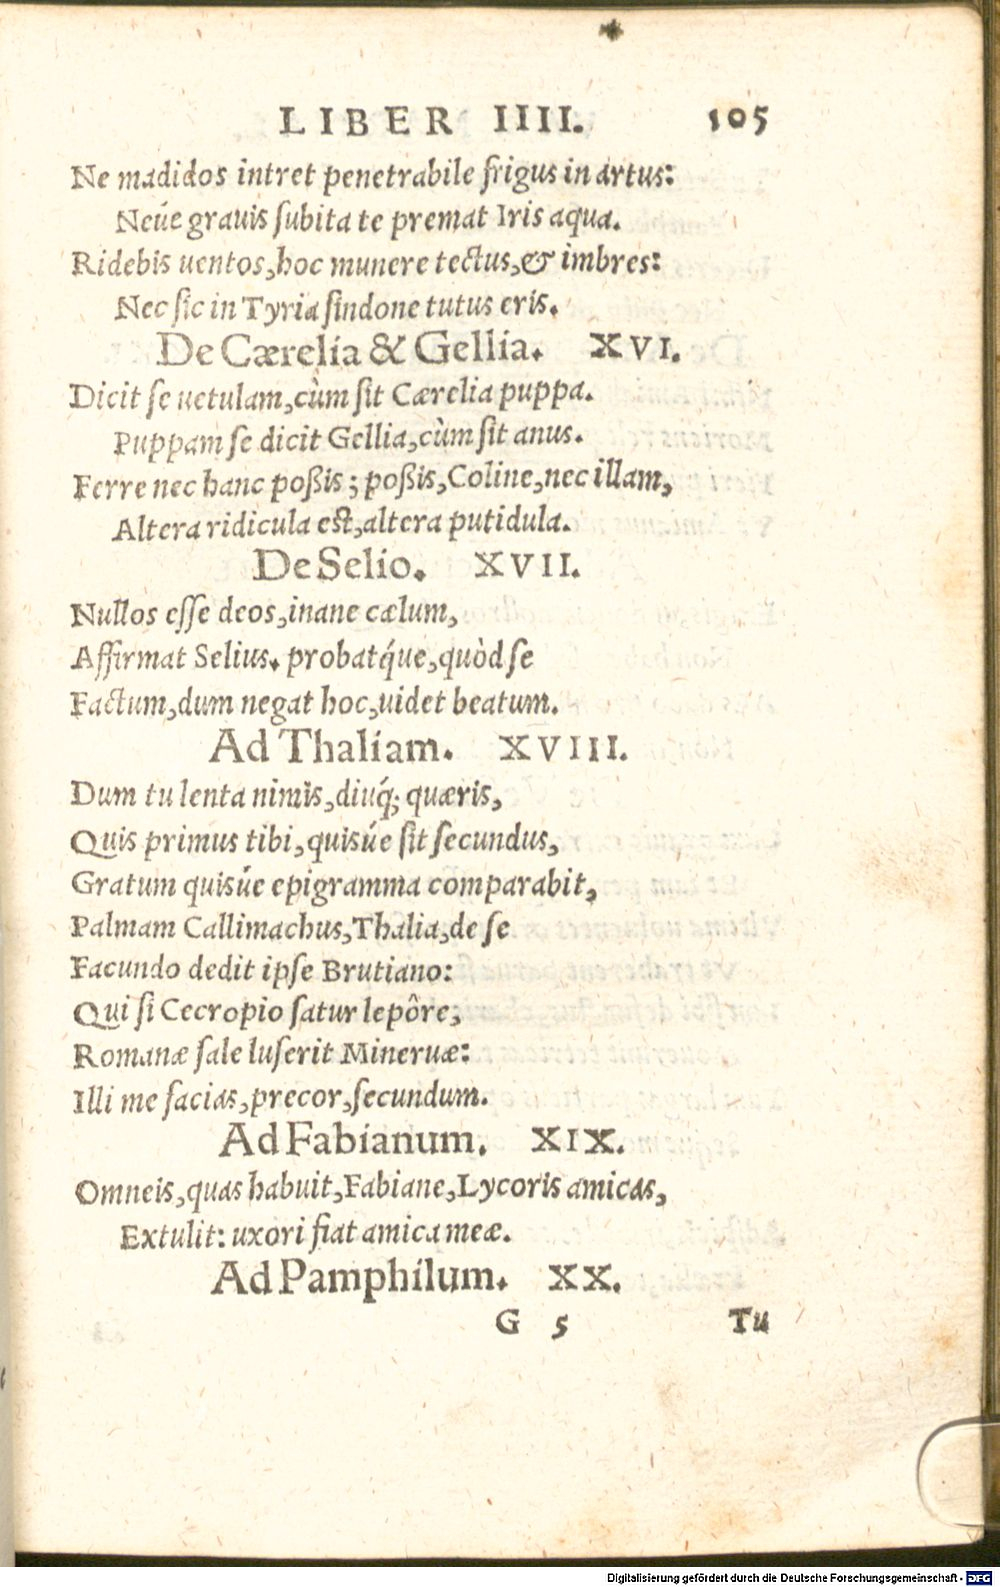 LIBER IIII. 105
Ne madidos intret penetrabile frigus in artus:
Neúe grauis subita te premat Iris aqua.
Ridebis uentos, hoc munere tectus, & imbres:
Nec sic in Tyria sindone tutus eris.
De Cærelia & Gellia. XVI.
Dicit se uetulam, cùm sit Cærelia puppa.
Puppam se dicit Gellia, cùm sit anus.
Ferre nec hanc poßis; poßis, Coline, nec illam,
Altera ridicula est, altera putidula.
De Selio. XVII.
Nullos esse deos, inane cælum,
Affirmat Selius. probatq́ue, quòd se
Factum, dum negat hoc, uidet beatum.
Ad Thaliam. XVIII.
Dum tu lenta nimis, diuq́; quæris,
Quis primus tibi, quisúe sit secundus,
Gratum quisúe epigramma comparabit,
Palmam Callimachus, Thalia, de se
Facundo dedit ipse Brutiano:
Qui si Cecropio satur lepôre,
Romanæ sale luserit Mineruæ:
Illi me facias, precor, secundum.
Ad Fabianum. XIX.
Omneis, quas habuit, Fabiane, Lycoris amicas,
Extulit: uxori fiat amica meæ.
Ad Pamphilum. XX.
G 5 Tu
Digitalisierung gefördert durch die Deutsche Forschungsgemeinschaft - DFG